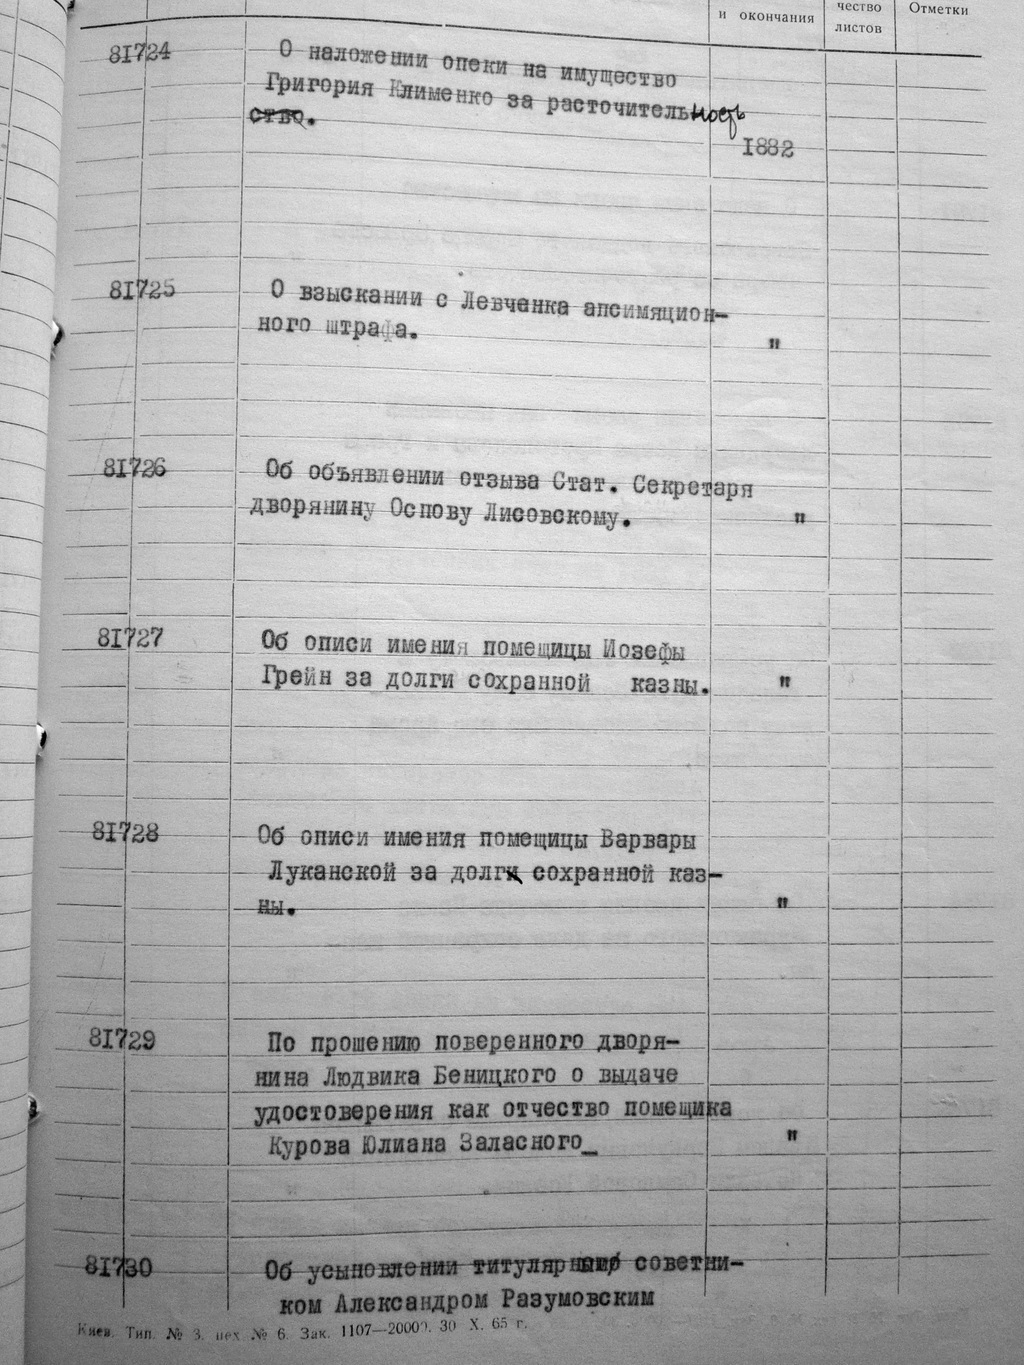 и окончания
чество
листов
Отметки
81724
О наложении опеки на имущество
Григория Клименко за расточительность
ство.
1882
81725
О взыскании с Левченка апсимяцион-
ного штрафа.
"
81726
Об объявлении отзыва Стат. Секретаря
дворянину Оспову Лисовскому.
"
81727
Об описи имения помещицы Иозефы
Грейн за долги сохранной казны.
"
81728
Об описи имения помещицы Варвары
Луканской за долги сохранной каз-
ны.
"
81729
По прошению поверенного дворя-
нина Людвика Беницкого о выдаче
удостоверения как отчество помещика
Курова Юлиана Заласного_
"
81730
Об усыновлении титулярным советни-
ком Александром Разумовским
Киев. Тип. № 3. цех № 6. Зак. 1107—20000. 30 X. 65 г.